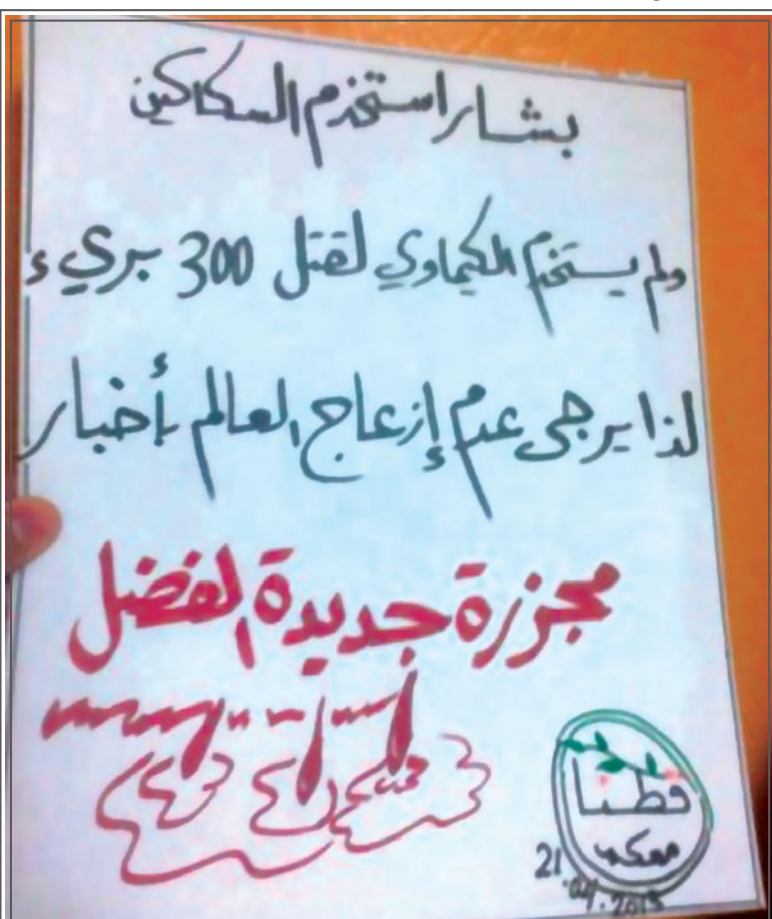 بشار استخدم السكاكين
ولم يستخدم الكيماوي لقتل 300 بريء
لذا يرجى عدم إزعاج العالم بأخبار
مجزرة جديدة الفضل
معكم
21
.04.2013